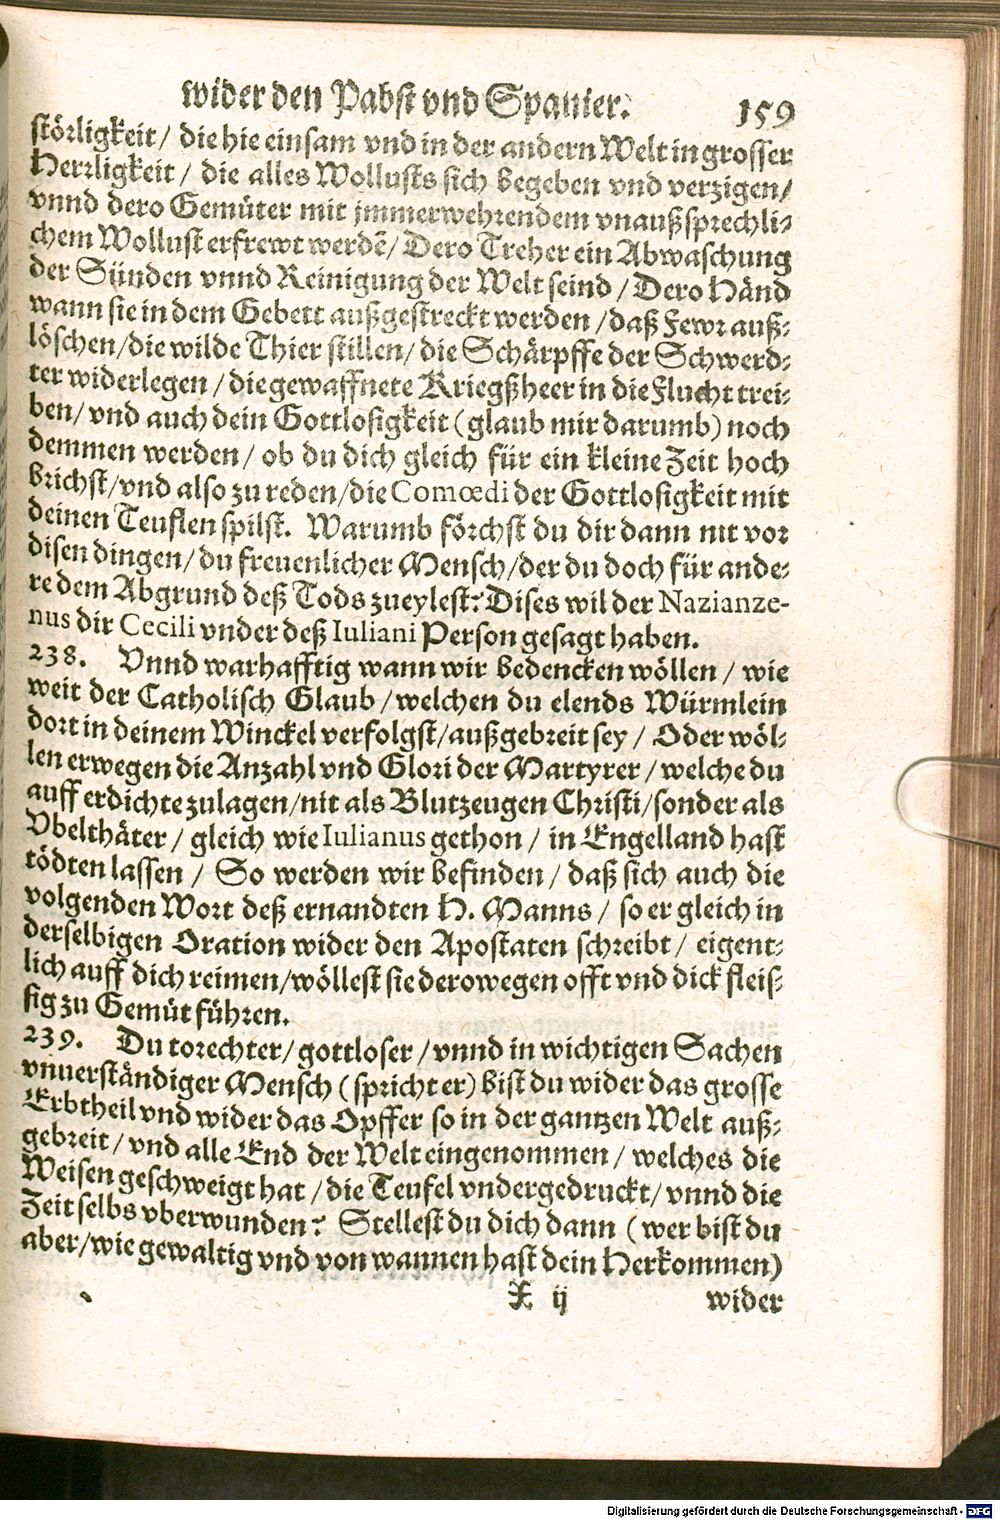 wider den Pabst vnd Spanier. 159
störligkeit/ die hie einsam vnd in der andern Welt in grosser
Herrligkeit / die alles Wollusts sich begeben vnd verzigen/
vnnd dero Gemüter mit jmmerwehrendem vnaußsprechli-
chem Wollust erfrewt werdẽ/ Dero Treher ein Abwaschung
der Sünden vnnd Reinigung der Welt seind / Dero Händ
wann sie in dem Gebett außgestreckt werden / daß Fewr auß-
löschen/die wilde Thier stillen/ die Schärpffe der Schwerd-
ter widerlegen / die gewaffnete Kriegßheer in die Flucht trei-
ben/ vnd auch dein Gottlosigkeit (glaub mir darumb) noch
demmen werden / ob du dich gleich für ein kleine Zeit hoch
brichst/vnd also zu reden/die Comœdi der Gottlosigkeit mit
deinen Teuflen spilst. Warumb förchst du dir dann nit vor
disen dingen/ du freuenlicher Mensch/der du doch für ande-
re dem Abgrund deß Tods zueylest? Dises wil der Nazianze-
nus dir Cecili vnder deß Iuliani Person gesagt haben.
238. Vnnd warhafftig wann wir bedencken wöllen / wie
weit der Catholisch Glaub / welchen du elends Würmlein
dort in deinem Winckel verfolgst/außgebreit sey / Oder wöl-
len erwegen die Anzahl vnd Glori der Martyrer / welche du
auff erdichte zulagen/nit als Blutzeugen Christi/sonder als
Vbelthäter / gleich wie Iulianus gethon / in Engelland hast
tödten lassen / So werden wir befinden / daß sich auch die
volgenden Wort deß ernandten H. Manns / so er gleich in
derselbigen Oration wider den Apostaten schreibt / eigent-
lich auff dich reimen/wöllest sie derowegen offt vnd dick fleis-
sig zu Gemüt führen.
239. Du torechter/ gottloser / vnnd in wichtigen Sachen
vnuerständiger Mensch (spricht er) bist du wider das grosse
Erbtheil vnd wider das Opffer so in der gantzen Welt auß-
gebreit / vnd alle End der Welt eingenommen / welches die
Weisen geschweigt hat / die Teufel vndergedruckt/ vnnd die
Zeit selbs vberwunden? Stellest du dich dann (wer bist du
aber/wie gewaltig vnd von wannen hast dein Herkommen)
X ij wider
Digitalisierung gefördert durch die Deutsche Forschungsgemeinschaft - DFG